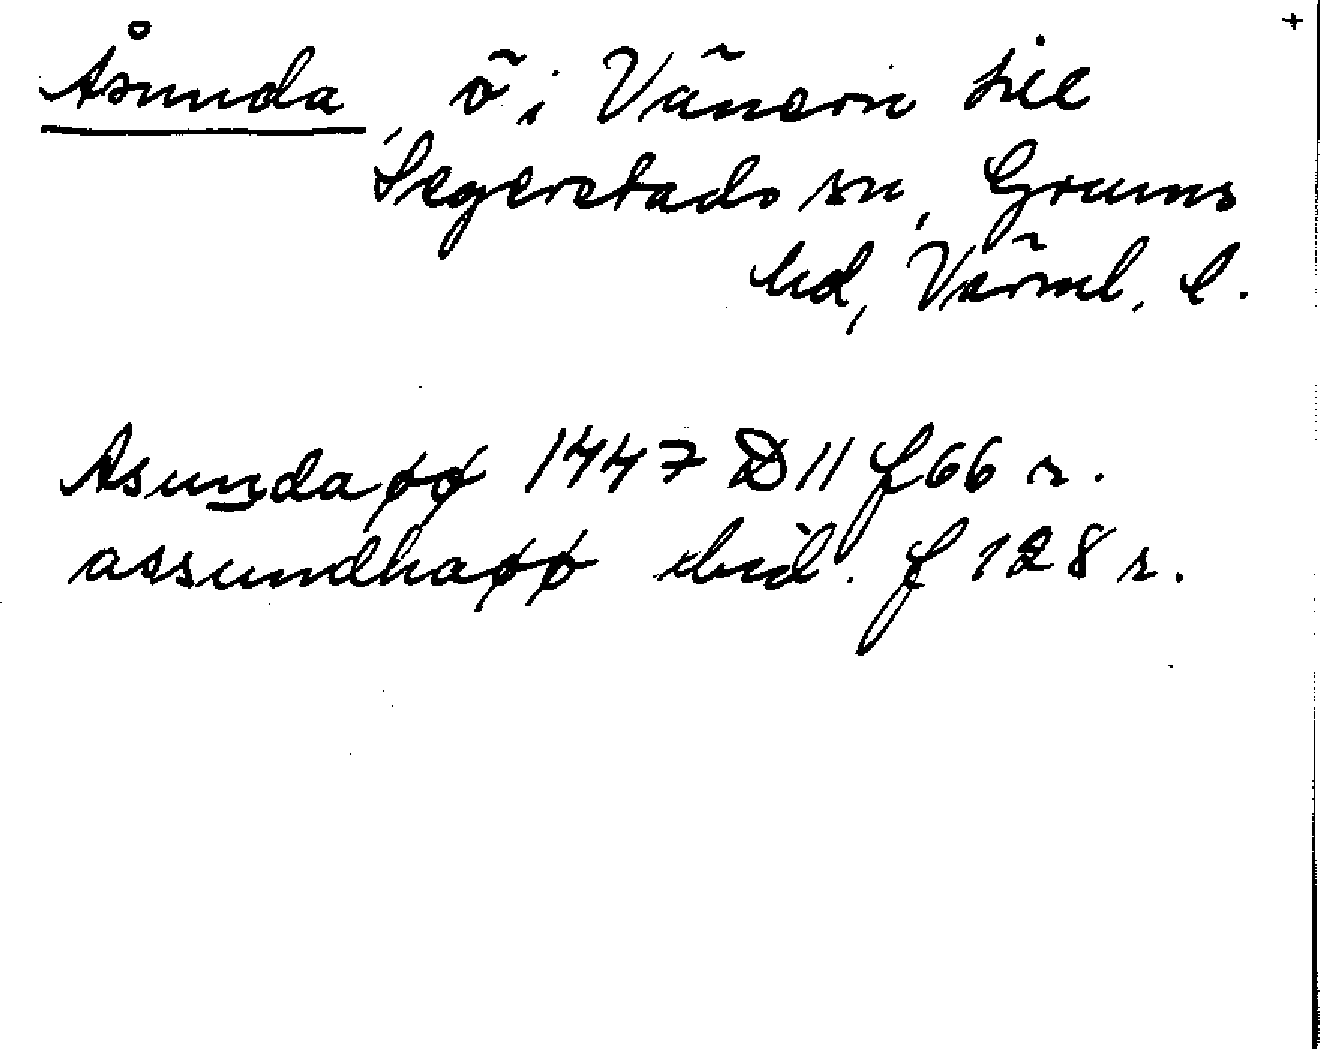 +
Åsunda, ö i Vänern till
Segerstads sn, Grums
hd, Värml. l.
Asundaøø 1447 D 11 f 66 r.
assundhaøø ibid. f 128 r.